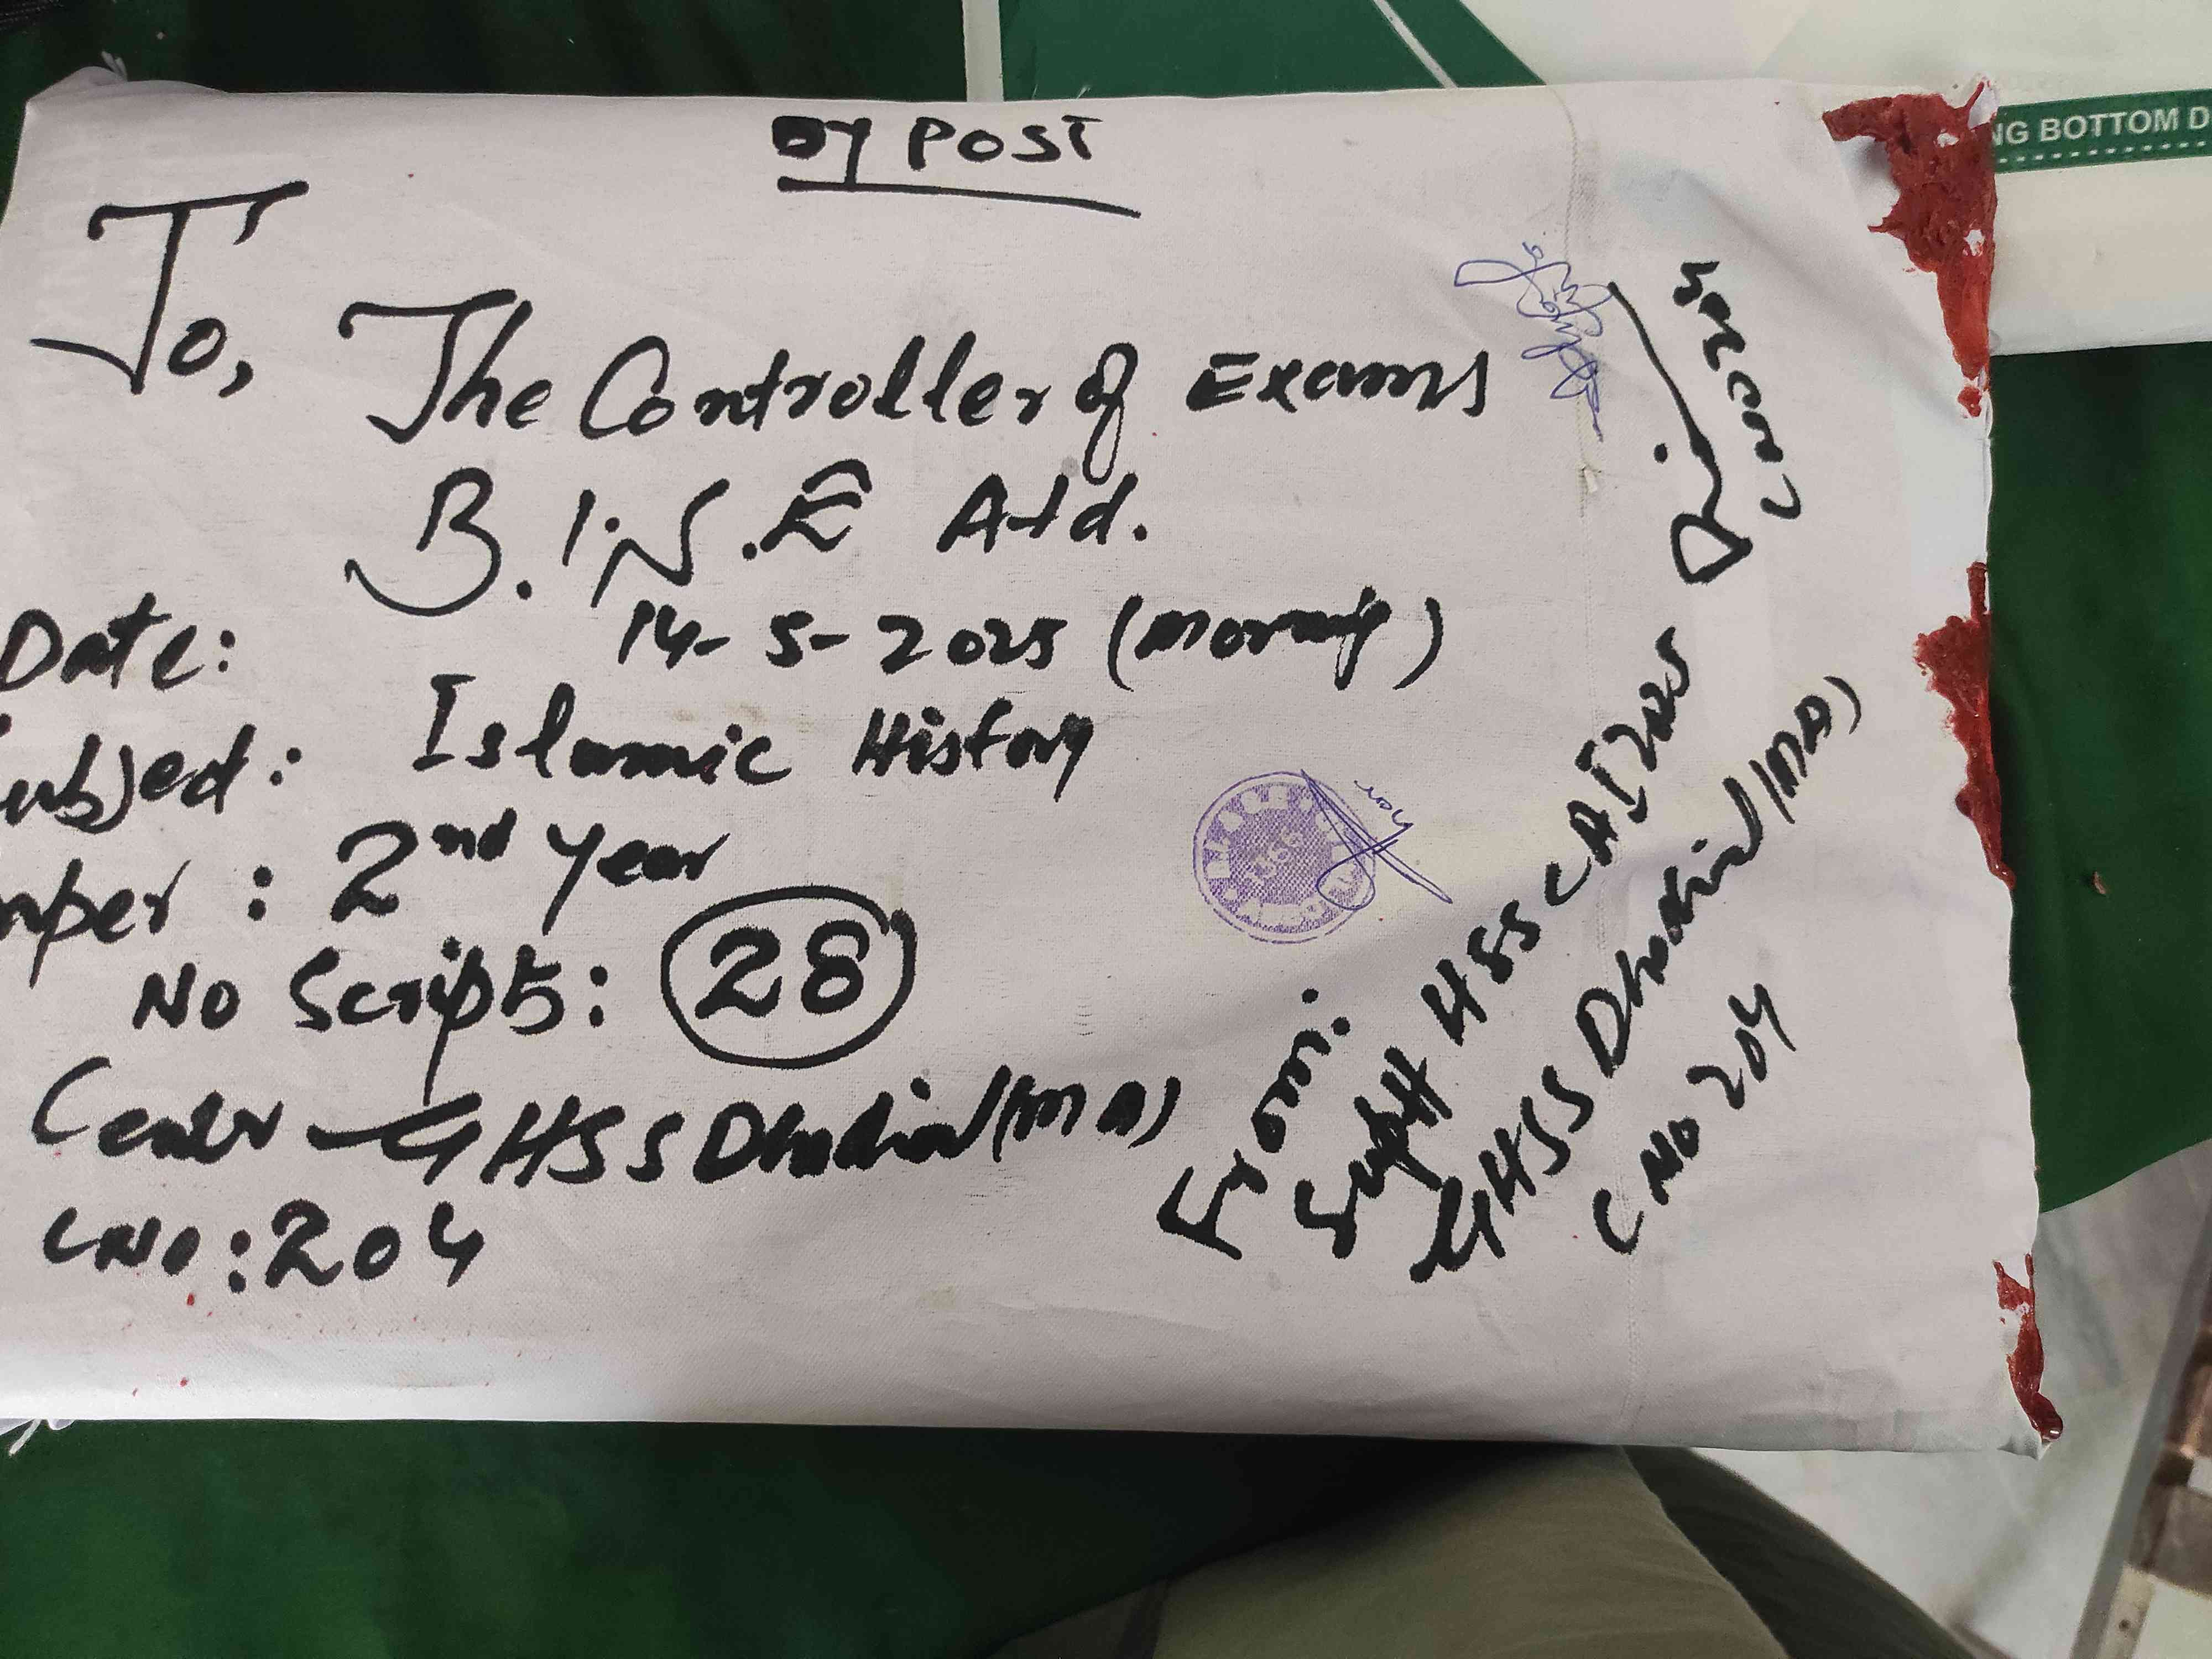 By POST
To,
The Controller of Exams
B.I.S.E Atd.
Date: 14-5-2025 (Morning)
ubject: Islamic History
mper: 2nd Year
No Scripts: 28
Center GHSS Dhudial (MA)
CNO: 204
From:
Supdtt HSSC AI 2025
GHSS Dhudial (MA)
CNO 204
NG BOTTOM D